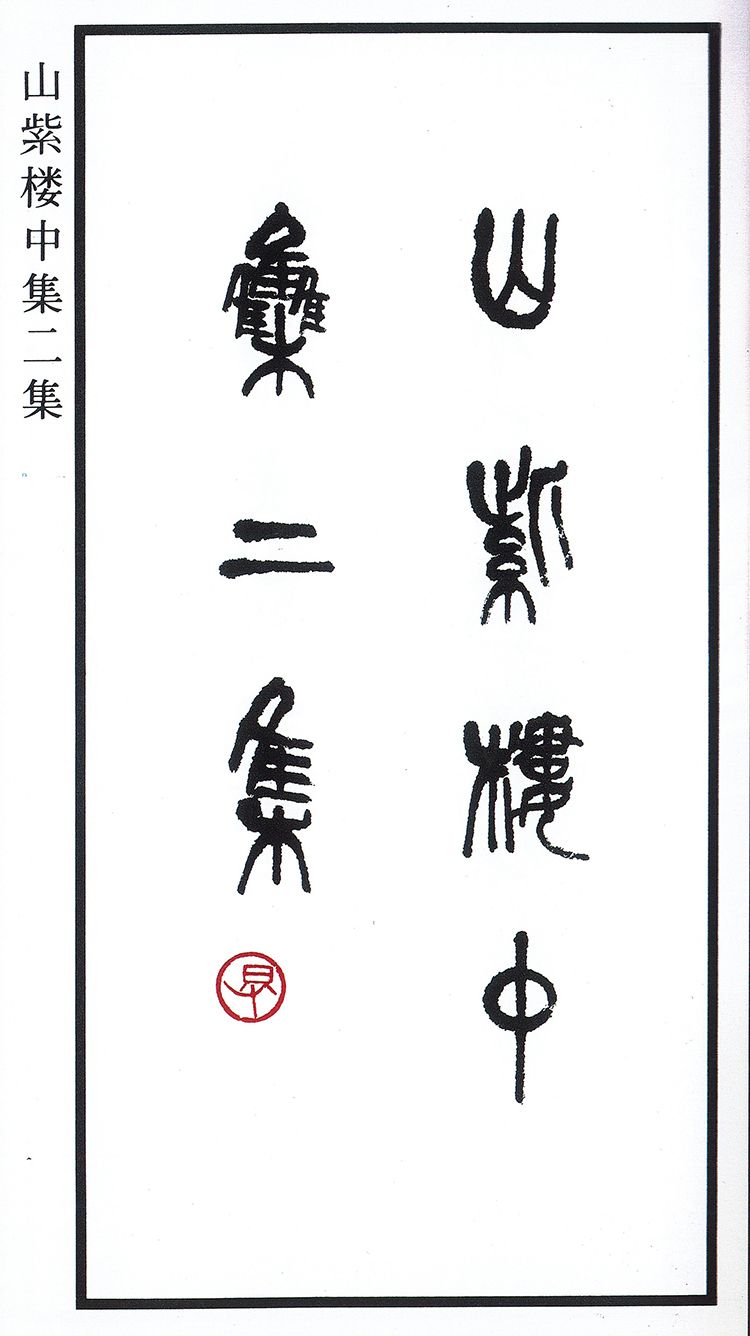 山紫楼中集二集
山紫樓中
雧二集